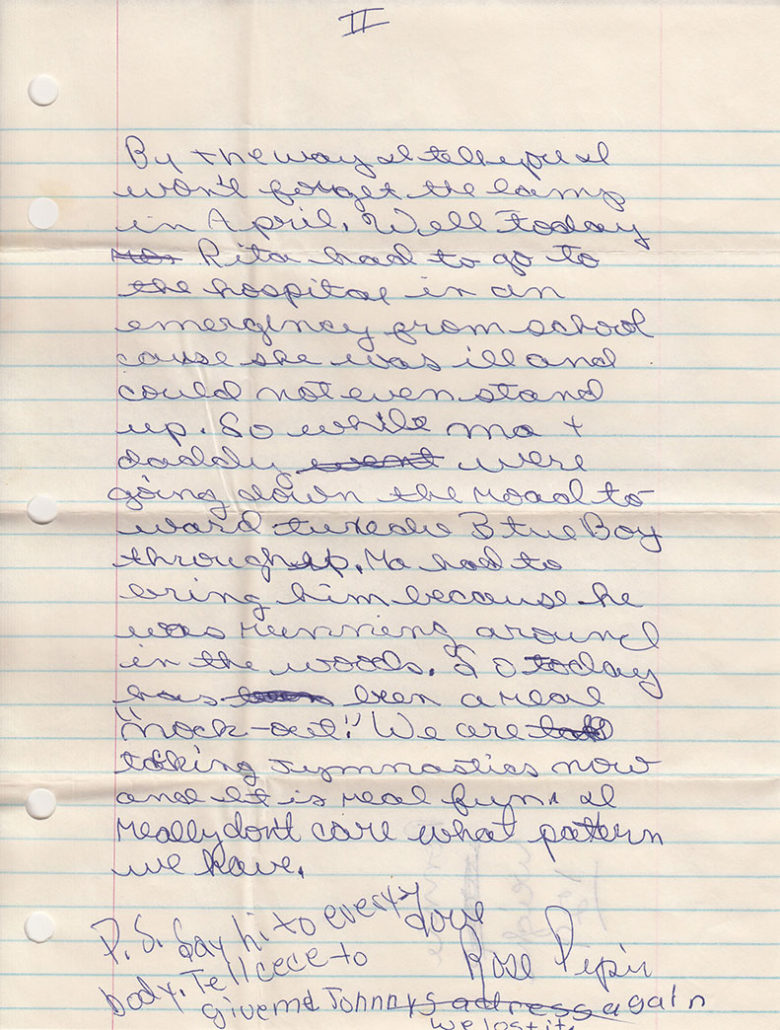 II
By the way I tell you I
won't forget the lamp
in April. Well today
Rita had to go to
the hospital in an
emergency from school
cause she was ill and
could not even stand
up. So while ma +
daddy went were
going down the road to
ward Blue Boy
through up. Ma had to
bring him because he
was running around
in the woods. So today
has been a real
"nock-out!" We are
taking jymnastics now
and it is real fun. I
really don't care what pattern
we have.
Love
Rose Pipin
P.S. Say hi to every
body. Tell cece to
give me Johnnys adress again
we lost it.